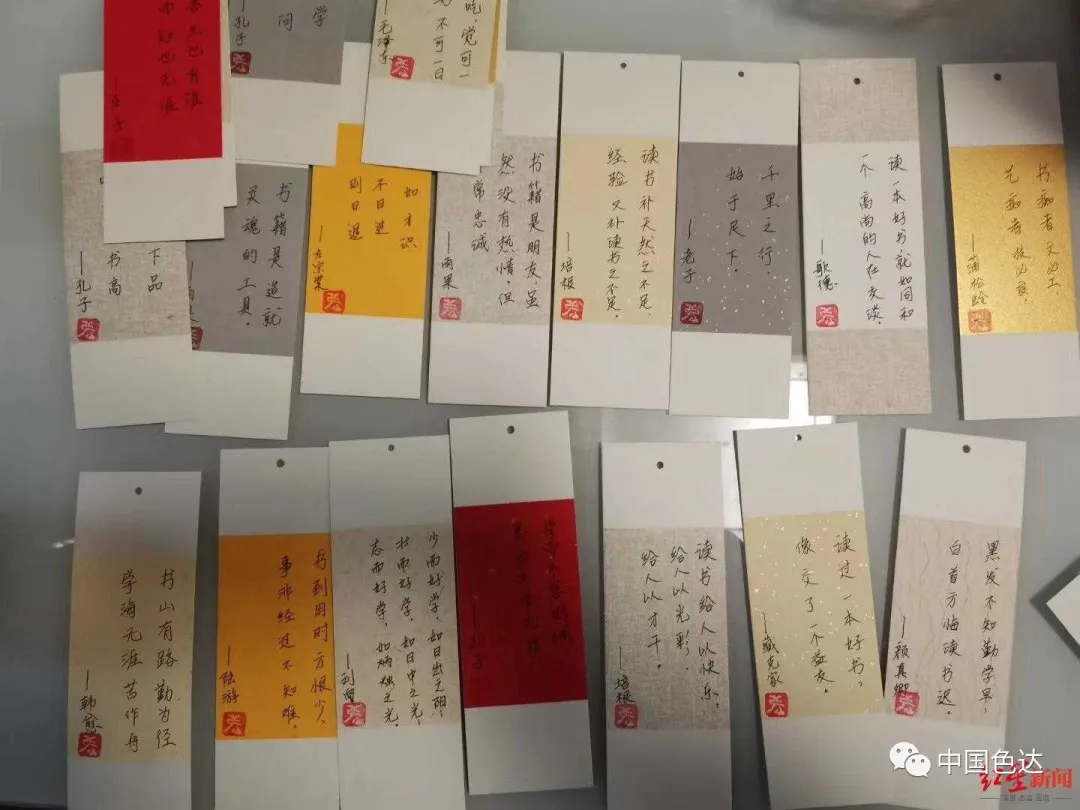 生也有涯
而知也无涯
——庄子
学
问
——孔子
吃,觉可一
不可一日
——毛泽东
下品
书高
——孔子
书籍是造就
灵魂的工具。
如才识
不日进
则日退
——左宗棠
书籍是朋友,虽
然没有热情,但
常忠诚
——雨果
读书补天然之不足,
经验又补读书之不足。
——培根
千里之行,
始于足下。
——老子
读一本好书,就如同和
一个高尚的人在交谈。
——歌德
书痴者文必工
艺痴者技必良。
——蒲松龄
书山有路勤为径
学海无涯苦作舟
——韩愈
书到用时方恨少,
事非经过不知难。
——陆游
少而好学,如日出之阳;
壮而好学,如日中之光;
志而好学,如炳烛之光。
——刘向
学而不思则罔
思而不学则殆
——孔子
读书给人以快乐,
给人以光彩,
给人以才干。
——培根
读过一本好书,
像交了一个益友。
——臧克家
黑发不知勤学早,
白首方悔读书迟。
——颜真卿
中国色达
红星新闻